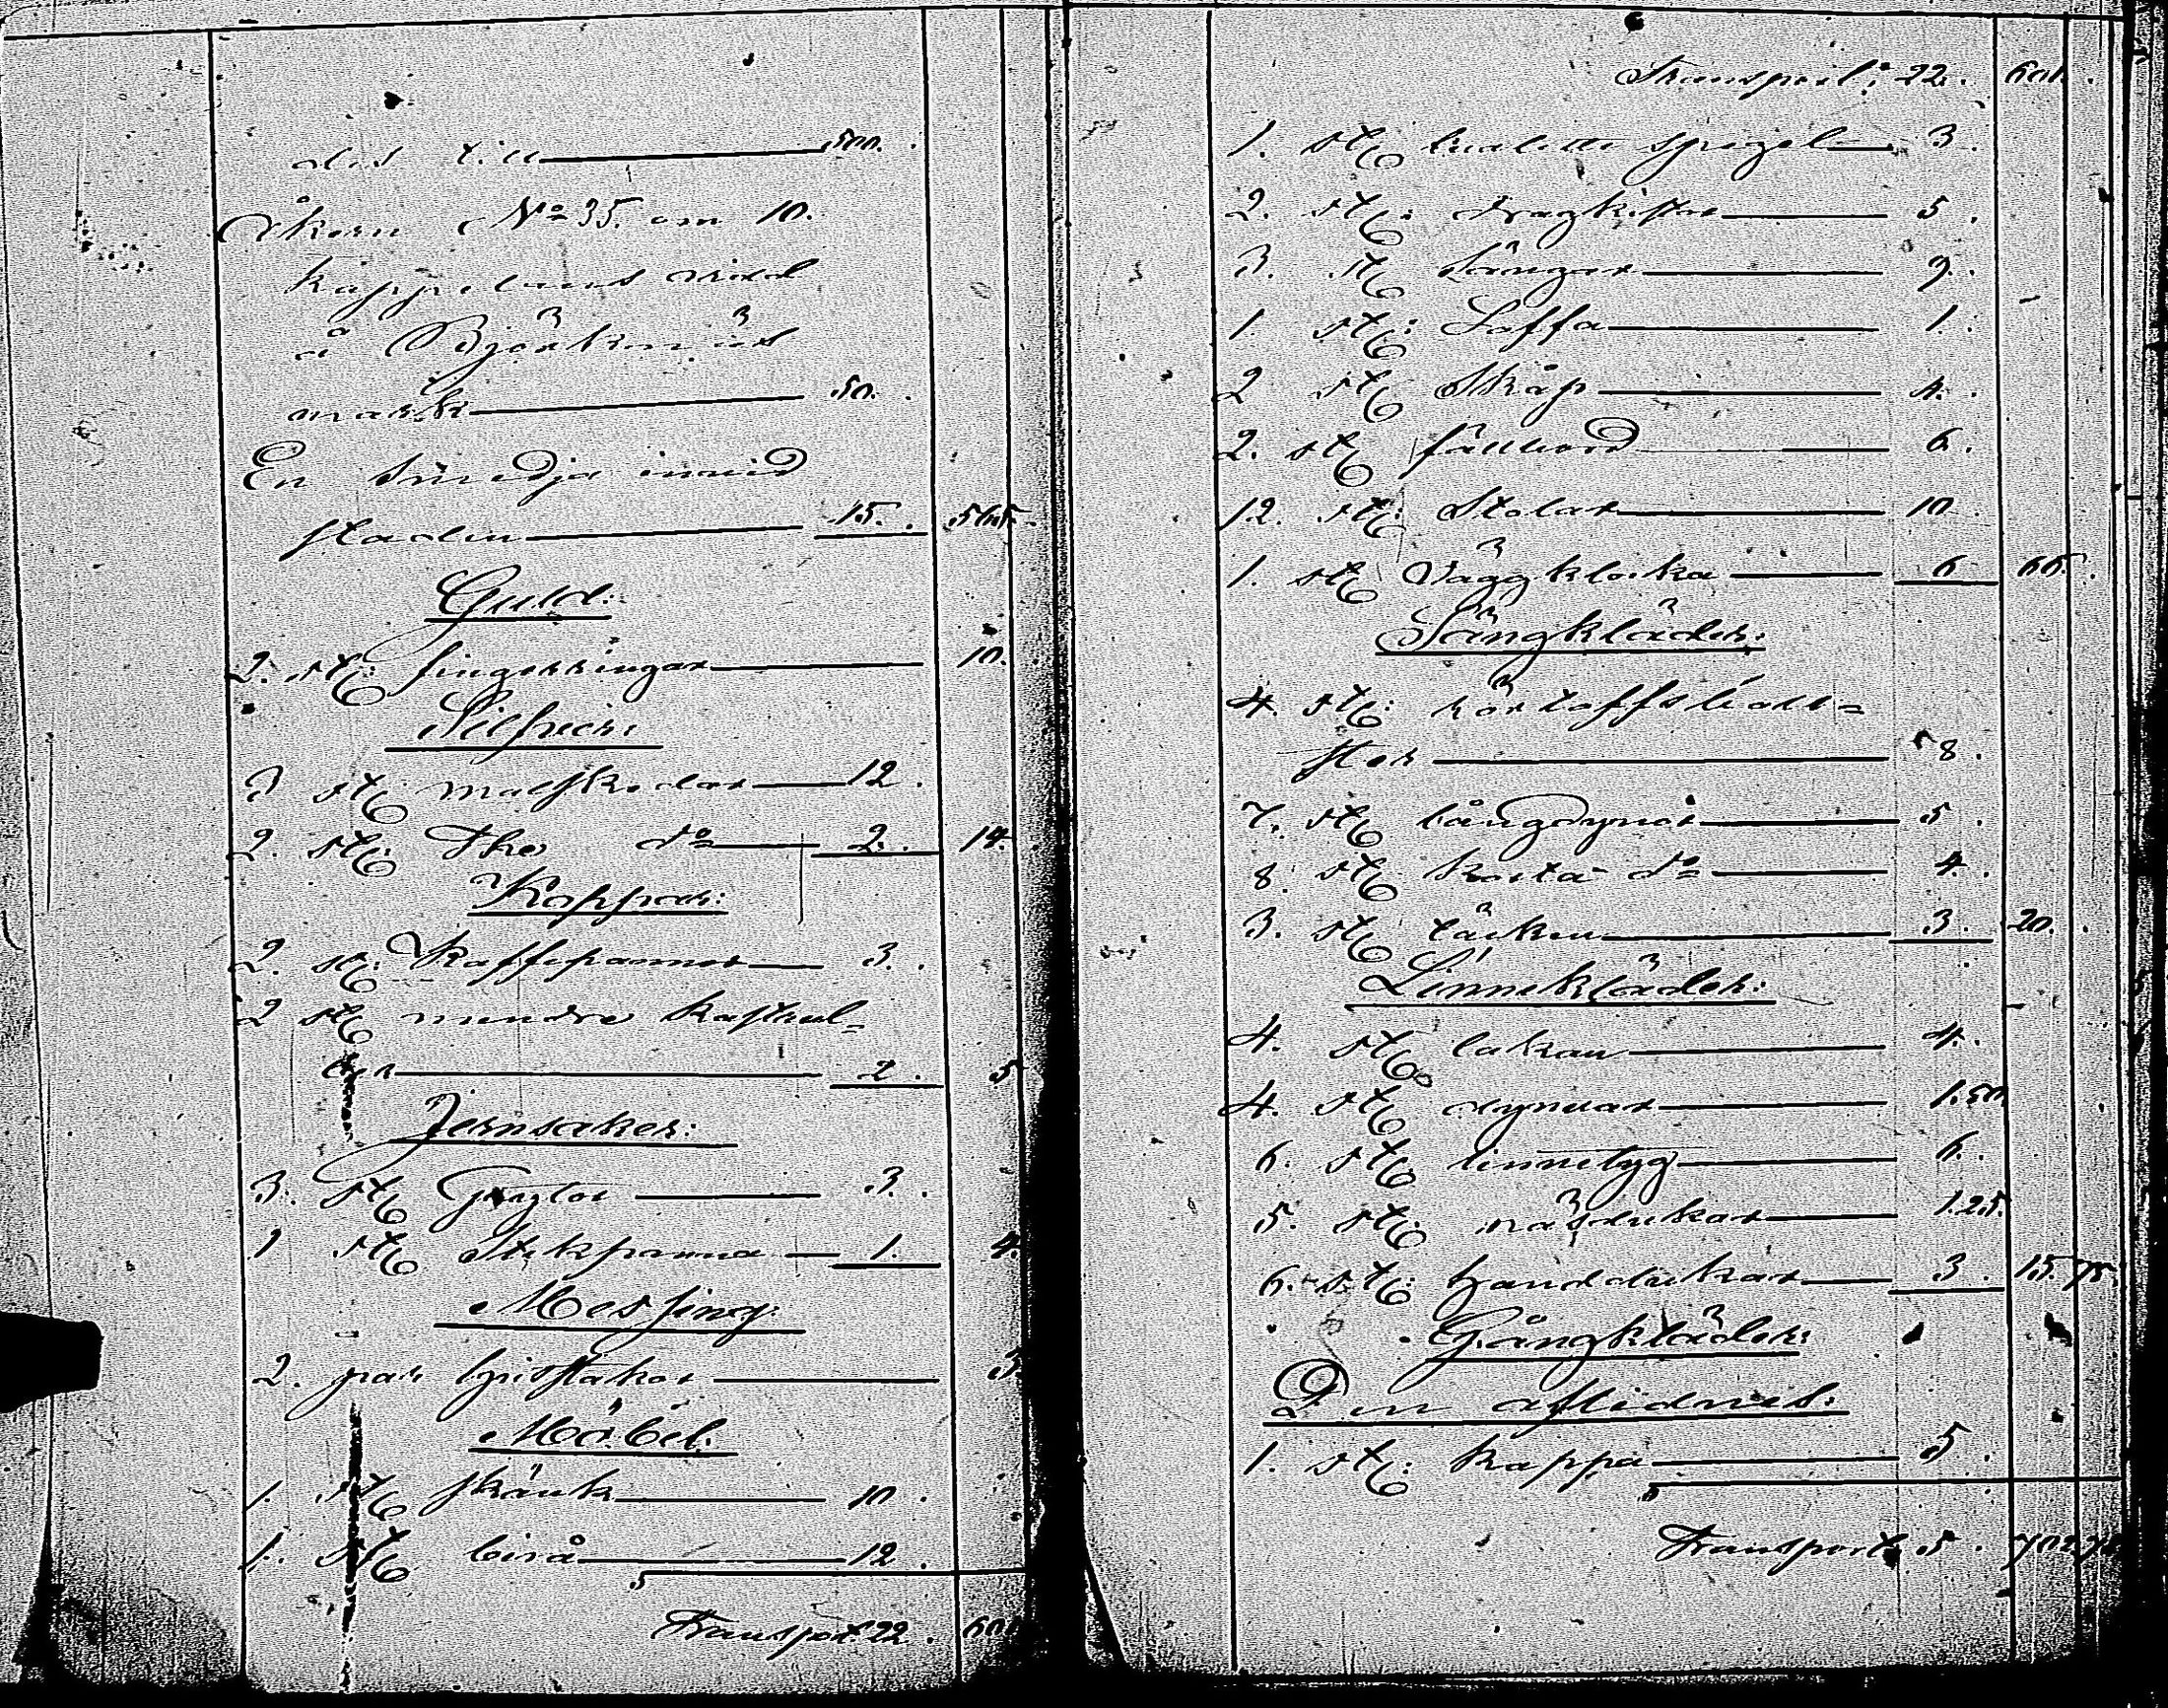 des till 500.
Åkern No 35. om 10.
kappeland vidd
å Björknäs
mark 50.
En smedja invid
staden 15. 565.
Guld:
2. st: fingerringar 10.
Silfver:
3 st: matskedar 12.
2. st: The do 2. 14.
Koppar:
2. st: Kaffepannor 3.
2 st: mindre kastrul=
ler 2. 5
Jernsaker:
3. st: Grytor 3.
1 st: Stekpanna 1. 4.
Messing:
2. par ljusstakar 3.
Möbel:
1. st: skänk 10.
1. st: birå 12.
Transport 22. 601
Transport: 22. 601.
1. st: spegel 3.
2. st: dragkistor 5.
3. st: Sängar 9.
1. st: Soffa 1.
2 st: Skåp 4.
2. st: fällbord 6.
12. st: Stolar 10.
1. st: Väggklocka 6 66.
Sängkläder:
4. st:
8.
7. st: långdynor 5.
8. st: korta do 4.
3. st: täcken 3. 20.
Linnekläder:
4. st: lakan 4.
4. st: dynvar 1.50
6. st: linnetyg 6.
5. st: näsdukar 1.25.
6. st: handdukar 3. 15.75.
Gångkläder:
Den aflidnes:
1. st: kappa 5.
Transport 5. 702.75